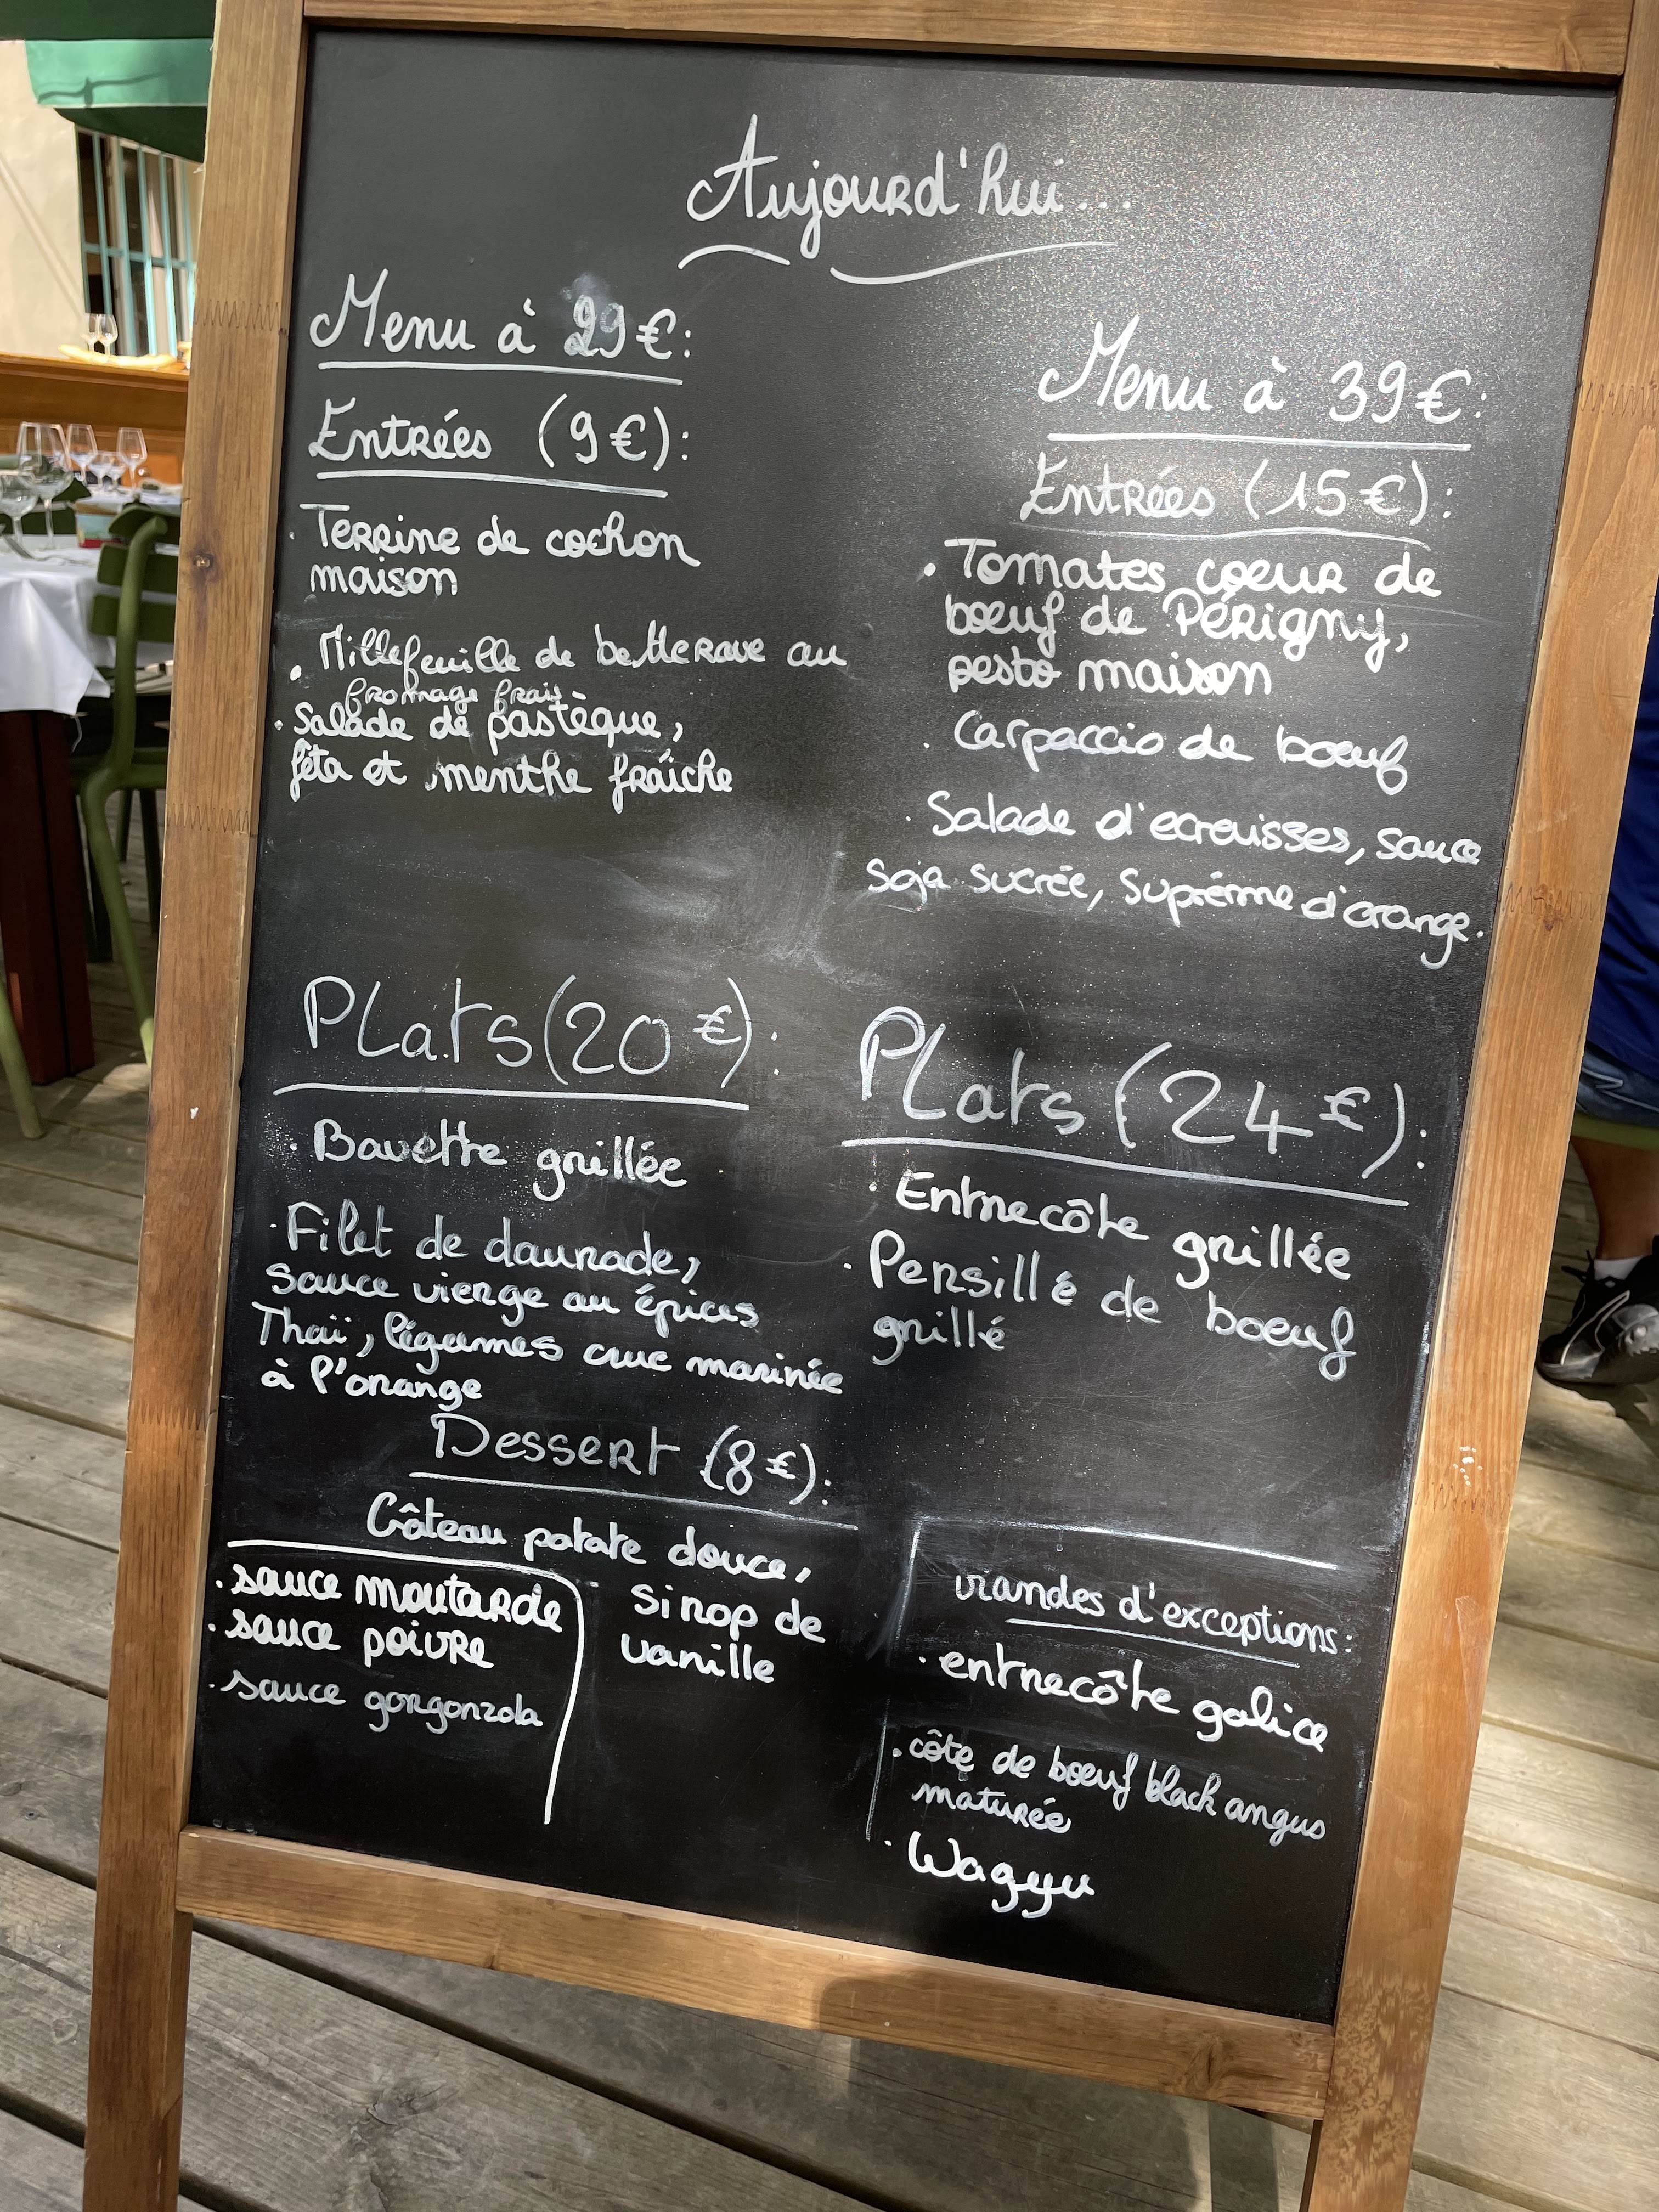 Aujourd'hui...
Menu à 29€:
Entrées (9€):
. Terrine de cochon
maison
. Millefeuille de betterave au
fromage frais
. Salade de pastèque,
fêta et menthe fraîche
Plats (20€):
. Bavette grillée
. Filet de daurade,
sauce vierge au épices
Thaï, légumes crue marinée
à l'orange
Dessert (8€):
Gâteau patate douce,
sirop de
vanille
. sauce moutarde
. sauce poivre
. sauce gorgonzola
Menu à 39€:
Entrées (15€):
. Tomates coeur de
boeuf de Périgny,
pesto maison
. Carpaccio de boeuf
. Salade d'ecrevisses, sauce
Soja sucrée, Suprême d'orange.
Plats (24€):
. Entrecôte grillée
. Persillé de boeuf
grillé
viandes d'exceptions:
. entrecôte galice
. côte de boeuf black angus
maturée
. Wagyu